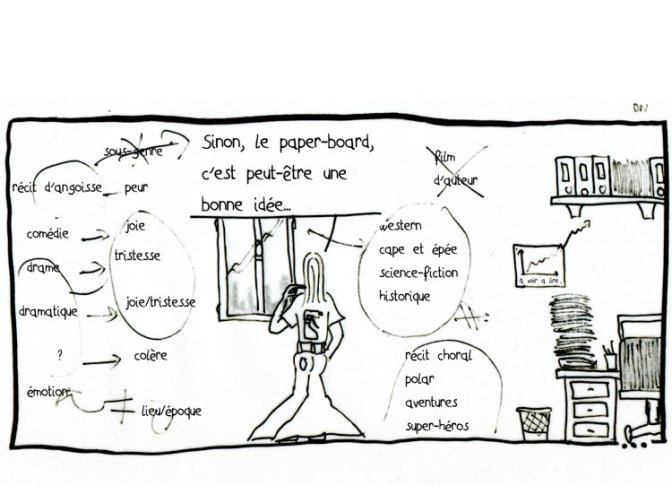 DN
Sinon, le paper-board,
c'est peut-être une
bonne idée...
sous-genre
récit d'angoisse
peur
comédie
joie
drame
tristesse
dramatique
joie/tristesse
?
colère
émotion
≠
lieu/époque
film
d'auteur
western
cape et épée
science-fiction
historique
récit choral
polar
aventures
super-héros
à voir à lire